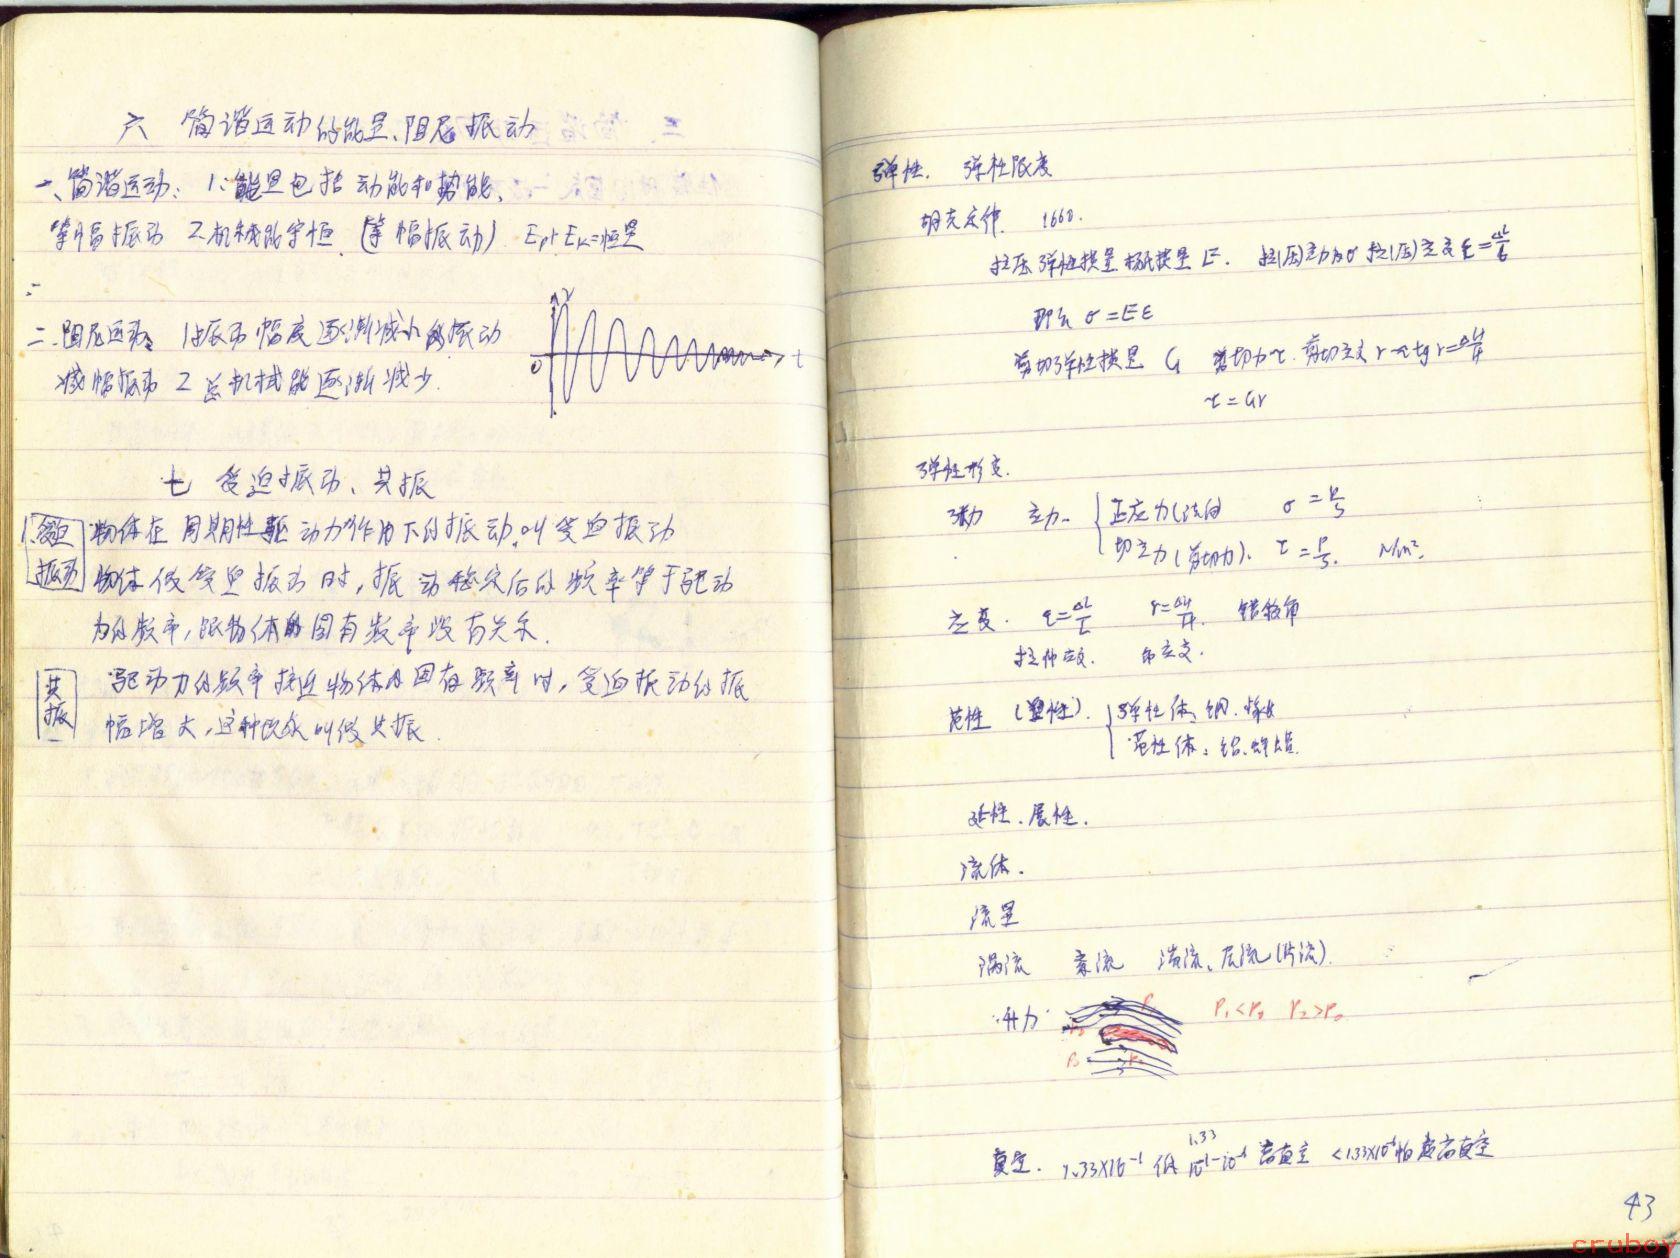 六 简谐运动的能量、阻尼振动
一、简谐运动: 1、能量包括动能和势能、
等幅振动 2 机械能守恒 (等幅振动) Ep+Ek=恒量
二、阻尼运动 1、振动幅度逐渐减小的振动
减幅振动 2 总机械能逐渐减少.
0 t
七 受迫振动、共振
1、受迫振动 物体在周期性驱动力作用下的振动叫受迫振动
物体做受迫振动时,振动稳定后的频率等于驱动
力的频率,跟物体的固有频率没有关系.
共振 驱动力的频率接近物体的固有频率时,受迫振动的振
幅增大,这种现象叫做共振.
弹性. 弹性限度
胡克定律. 1660.
拉压弹性模量 杨氏模量 E. 拉(压)应力为σ 拉(压)应变 ε=ΔL/L
即有 σ=Eε
剪切弹性模量 G 剪切力τ. 剪切应变 r≈tg r=ΔH/H
τ=Gr
弹性形变.
张力 应力. 正应力(法向 σ=P/S
切应力(剪切力). τ=P/S. N/m².
应变. ε=ΔL/L r=ΔH/H.
拉伸应变. 切应变.
范性 (塑性). 弹性体: 钢.
范性体: 铅.
延性. 展性.
流体.
流量
涡流 紊流 湍流、层流(片流).
升力 P₁<P₀ P₂>P₀
真空. 1.33×10⁻¹ 低 1.33 10⁻¹-10⁻⁶ 高真空 <1.33×10⁻⁶帕 超高真空
43
cruboy